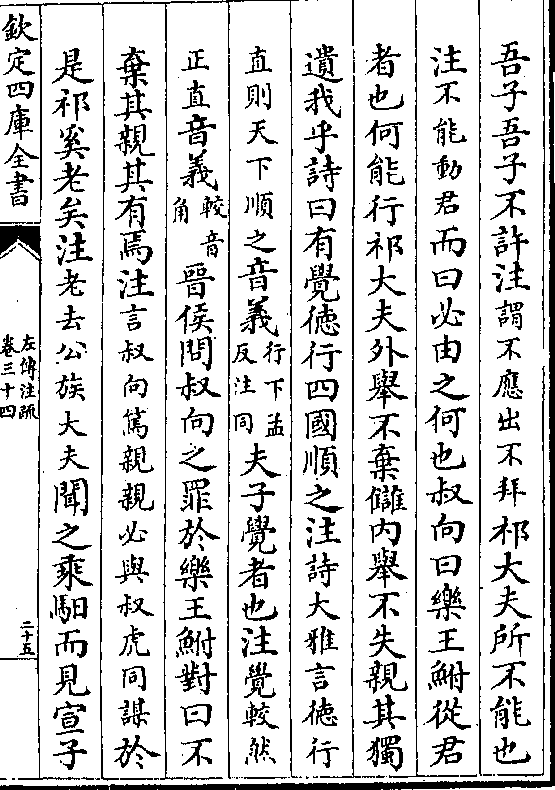 吾子吾子不許注謂不應出不拜祁大夫所不能也
注不能動君而曰必由之何也叔向曰樂王鮒從君
者也何能行祁大夫外舉不棄讎内舉不失親其獨
遺我乎詩曰有覺德行四國順之注詩大雅言德行
直則天下順之音義行下孟反注同夫子覺者也注覺較然
正直音義較音角晉侯問叔向之罪於樂王鮒對曰不
棄其親其有焉注言叔向篤親親必與叔虎同謀於
是祁奚老矣注老去公族大夫聞之乘馹而見宣子
欽定四庫全書
左傳注疏
卷三十四
二十五